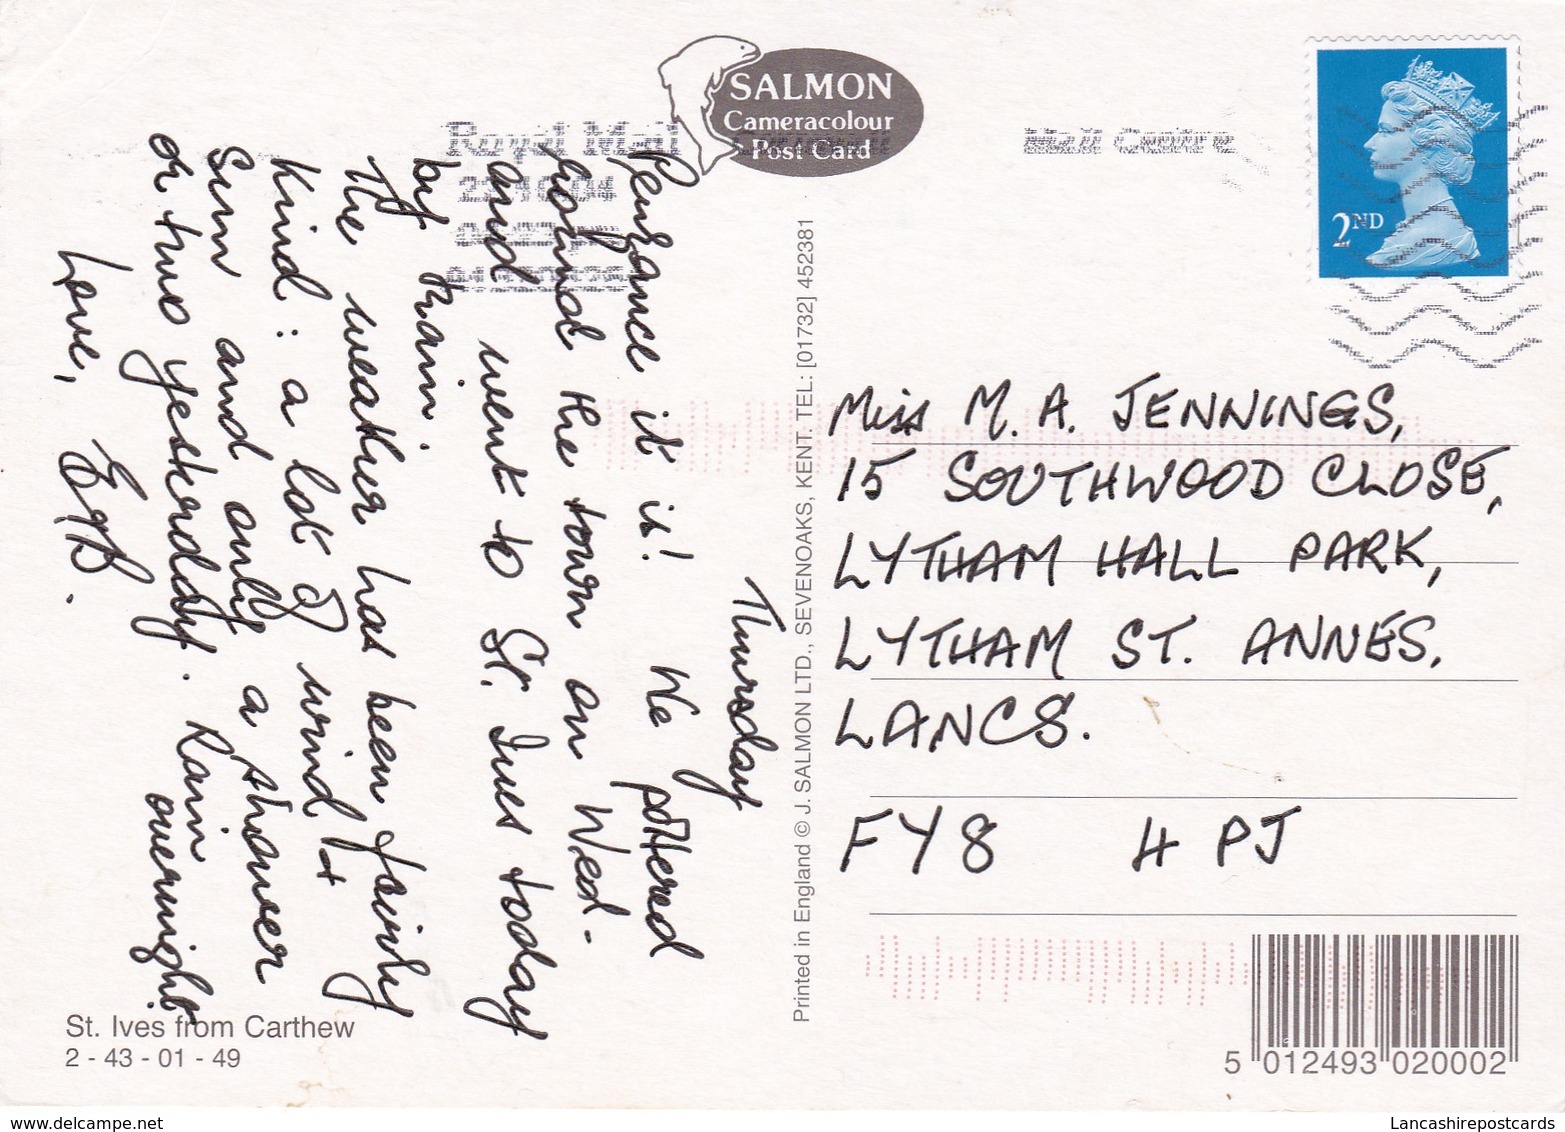 SALMON
Cameracolour
Post Card
Royal Mail
Mail Centre
2ND
Thursday
Penzance it is! We pottered
round the town on Wed-
and went to St. Ives today
by train.
The weather has been fairly
Kind: a lot of wind but
Sun and only a shower
or two yesterday. Rain
overnight.
Love,
Miss M. A. JENNINGS,
15 SOUTHWOOD CLOSE,
LYTHAM HALL PARK,
LYTHAM ST. ANNES,
LANCS.
FY8 4PJ
Printed in England © J. SALMON LTD., SEVENOAKS, KENT. TEL: [01732] 452381
St. Ives from Carthew
2 - 43 - 01 - 49
5 012493 020002
www.delcampe.net
Lancashirepostcards